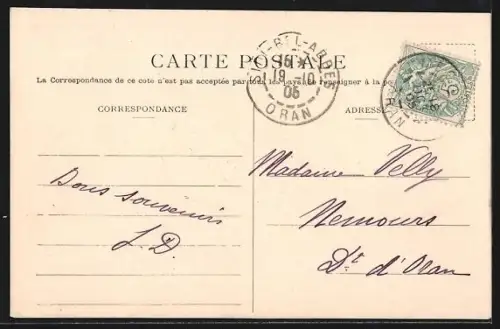 CARTE POSTALE
La Correspondance de ce côté n'est pas acceptée par tous les pays
CORRESPONDANCE
ADRESSE
BEL-ABBÈS
19 -10
05
ORAN
Bons souvenirs
J.D.
Madame Velly
Nemours
Dt d'Oran